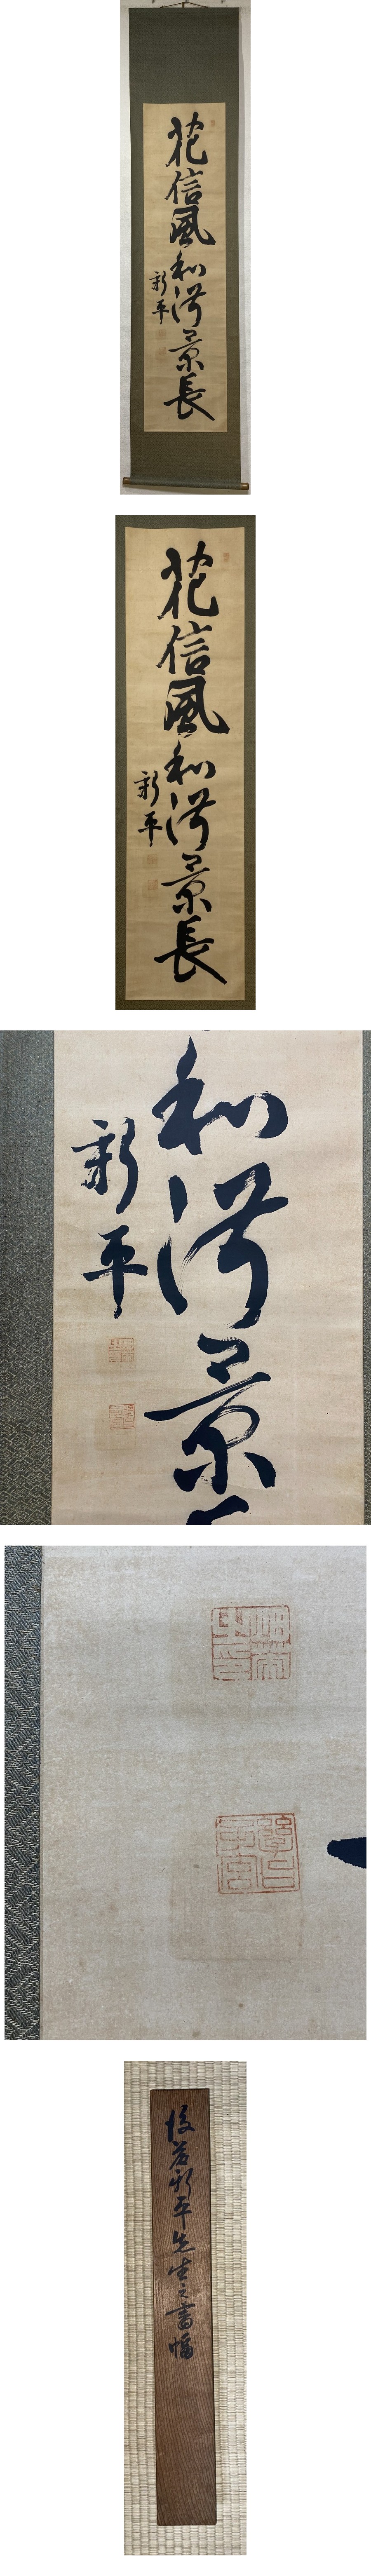 花信風和淑景長
新平
花信風和淑景長
新平
和淑景
新平
後藤新平先生之書幅